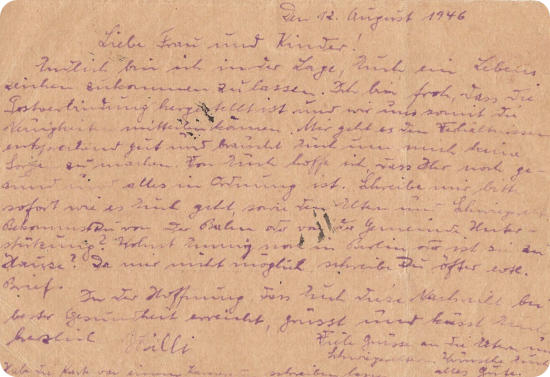 Den 12. August 1946
Liebe Frau und Kinder!
Endlich bin ich in der Lage, Euch ein Lebens
zeichen zukommen zu lassen. Ich bin froh, dass die
Postverbindung hergestellt ist und wir uns somit die
Neuigkeit mitteilen können. Mir geht es den Verhältnissen
entsprechend gut und braucht Euch um mich keine
Sorge zu machen. Von Euch hoffe ich, dass Ihr noch ge-
sund und alles in Ordnung ist. Schreibe mir bitt
sofort wie es Euch geht, sowie den Alten und
Bekommst Du von der Bahn oder von der Gemeinde Unter-
stützung? Wohnt noch in Berlin oder ist sie zu
Hause? Da mir nicht möglich schreibe Du öfter evtl.
Brief.
In der Hoffnung, dass Euch diese Nachricht bei
bester Gesundheit erreicht, grüsst und küsst Euch
herzlich Willi
Viele Grüsse an die Alten u
Wünsche Euch
alles Gute.
Habe die Karte von einem schreiben lassen